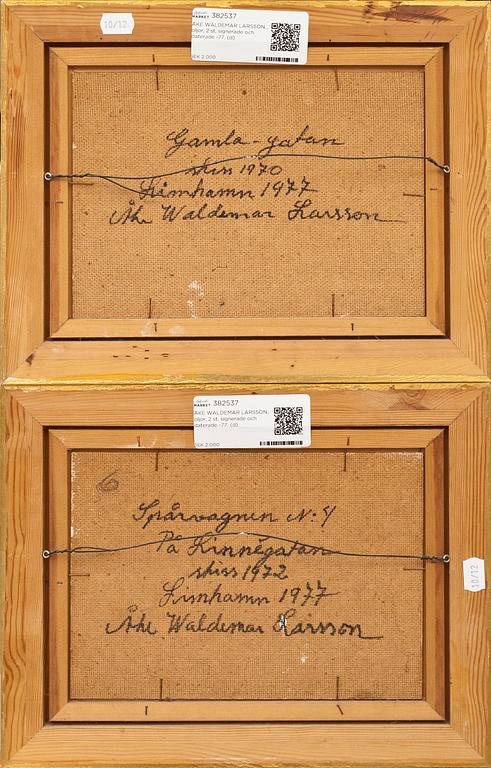 10/12
MARKET 382537
ÅKE WALDEMAR LARSSON,
oljor, 2 st, signerade och
daterade -77. (d)
SEK 2 000
Gamla-gatan
skiss 1970
Limhamn 1977
Åke Waldemar Larsson
MARKET 382537
ÅKE WALDEMAR LARSSON,
oljor, 2 st, signerade och
daterade -77. (d)
SEK 2 000
6
Spårvagnen N:4
På Linnégatan
skiss 1972
10/12
Limhamn 1977
Åke Waldemar Larsson